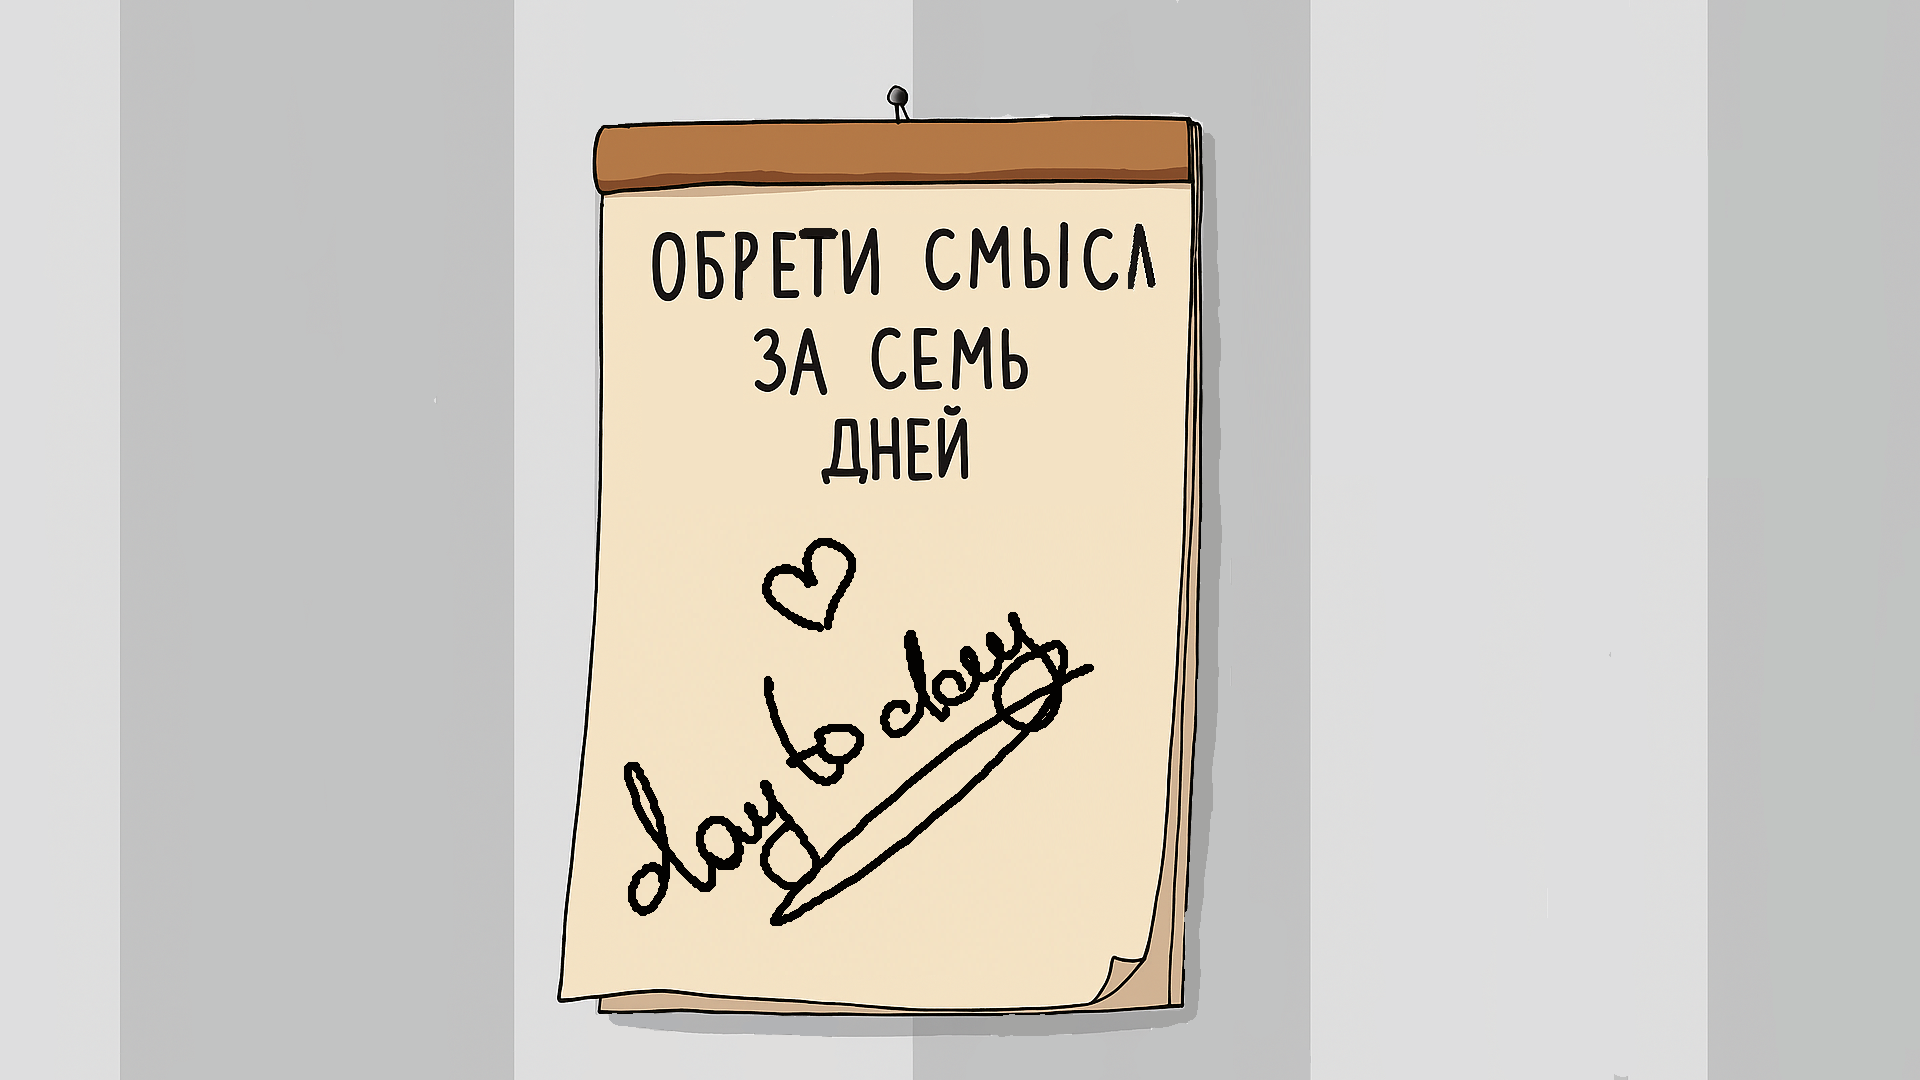 ОБРЕТИ СМЫСЛ
ЗА СЕМЬ
ДНЕЙ
day to day